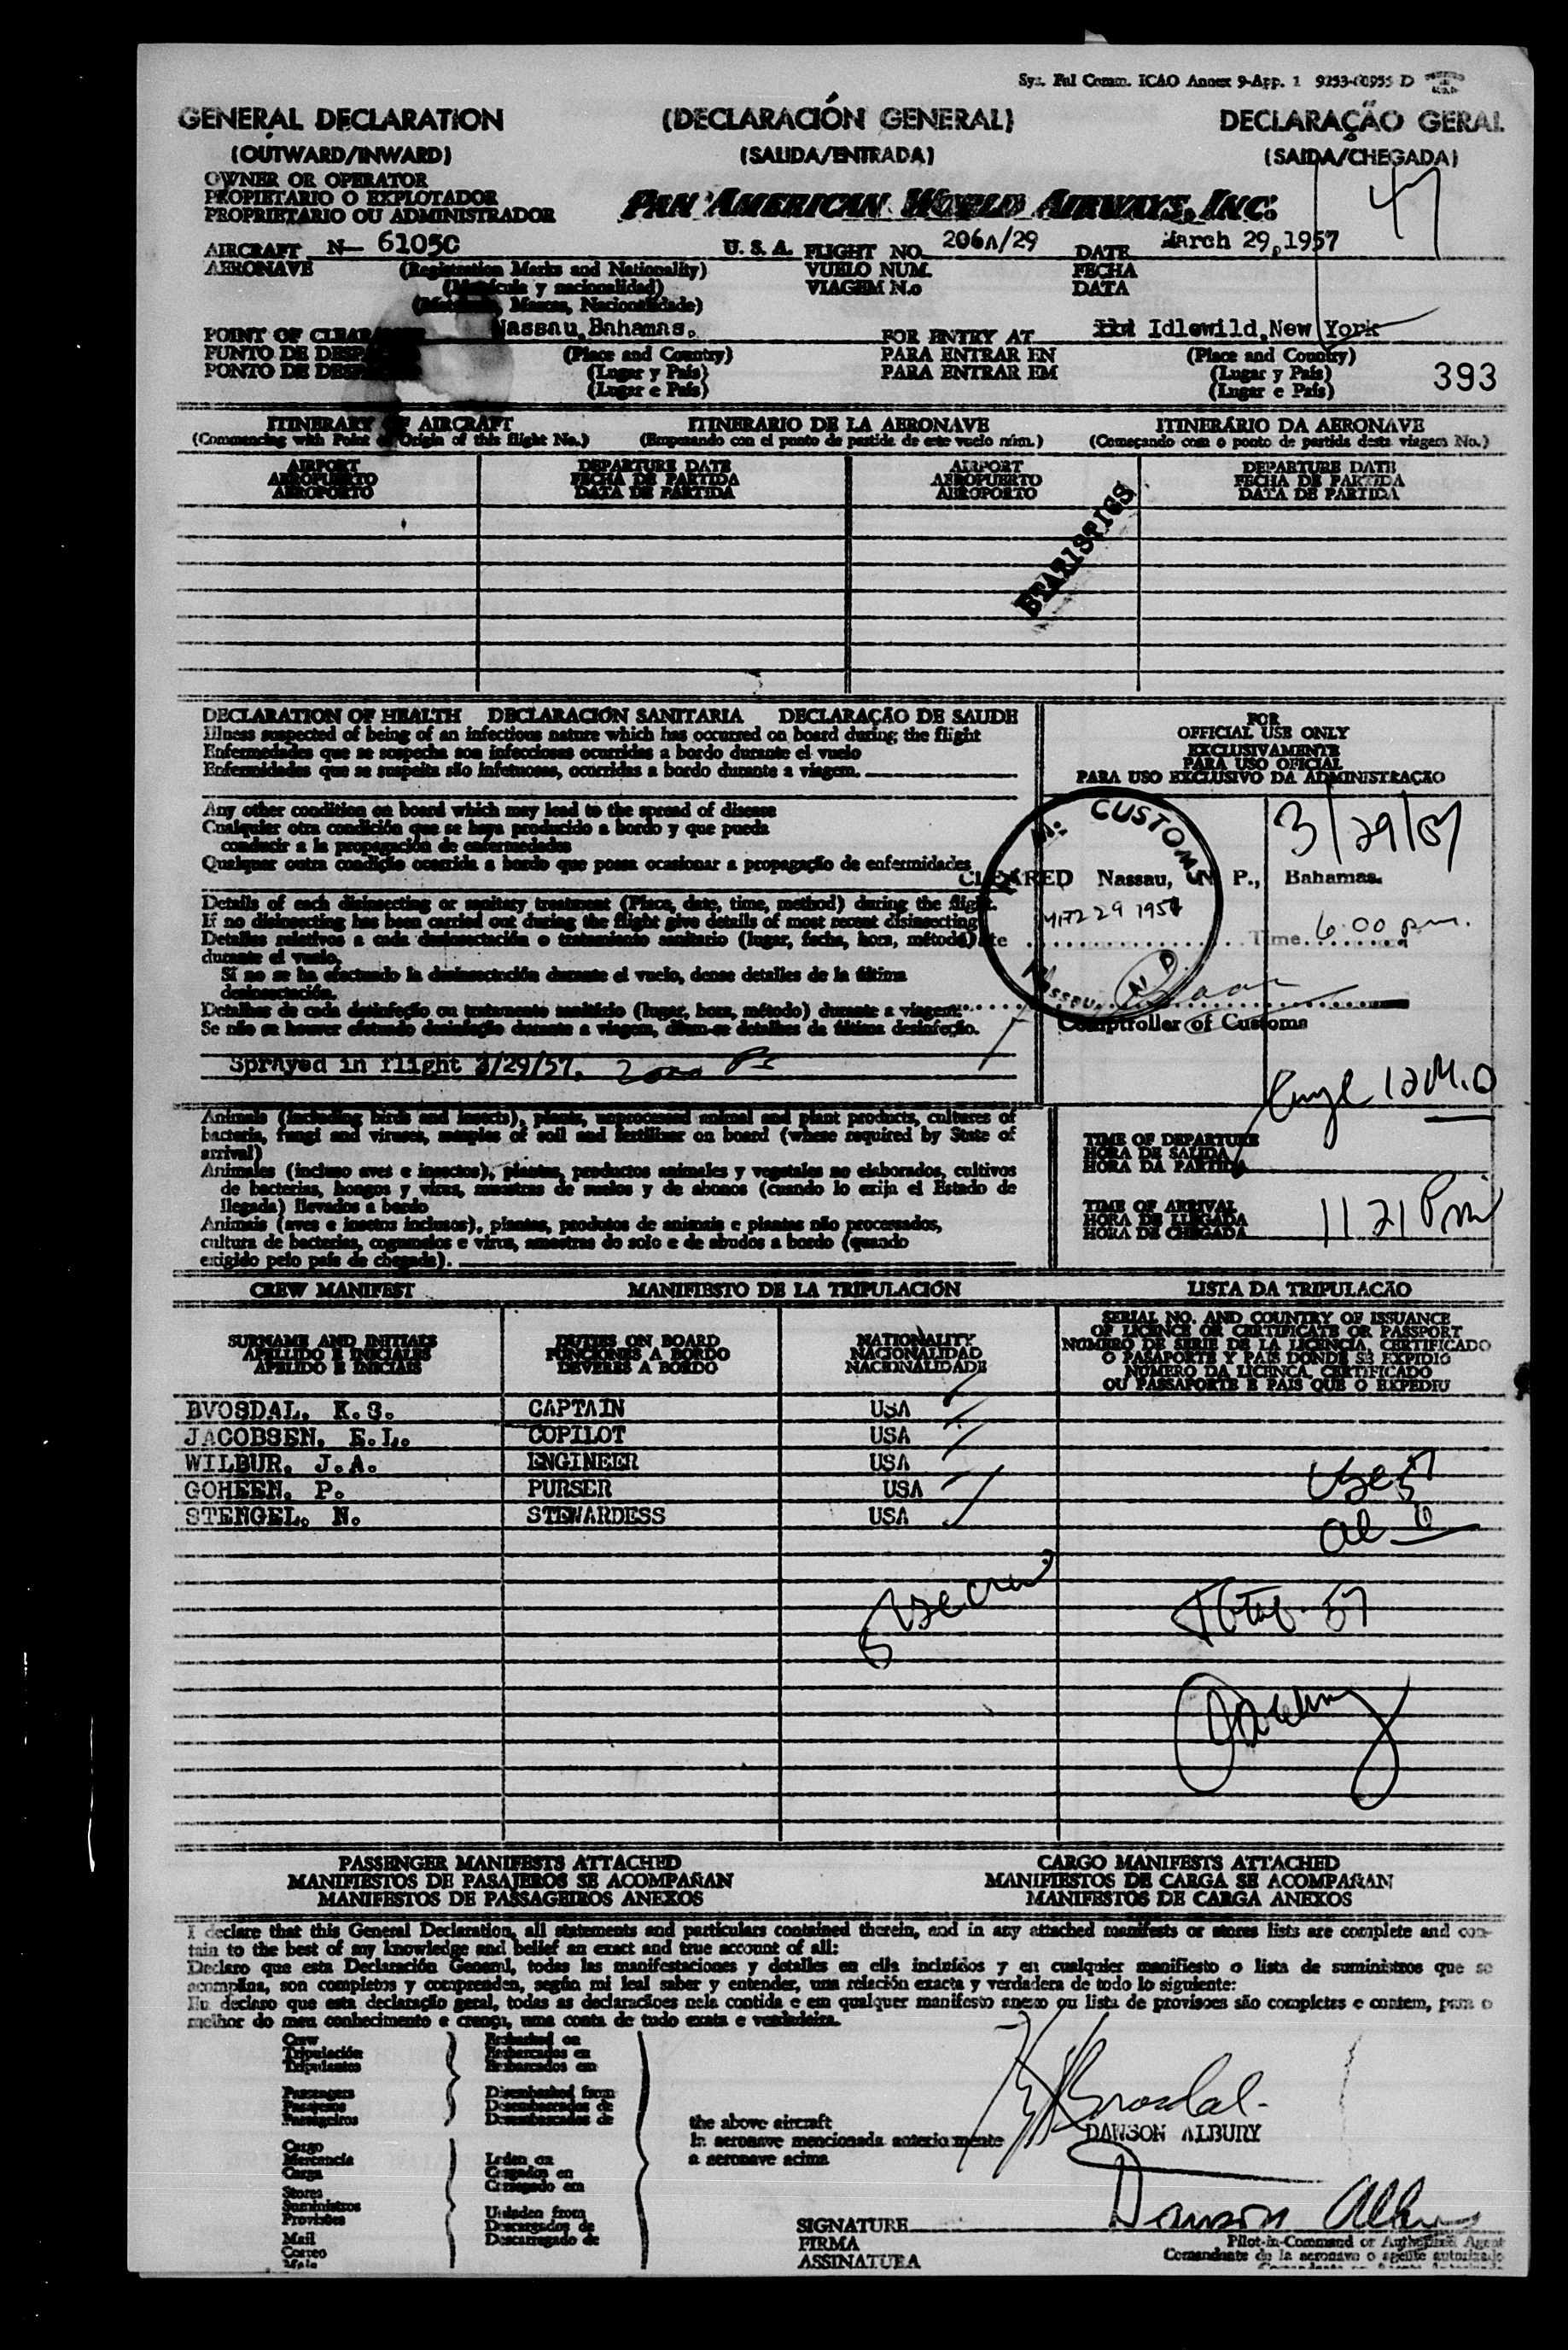 Sys. Ful Comm. ICAO Annex 9-App. 1
GENERAL DECLARATION (DECLARACIÓN GENERAL) DECLARAÇÃO GERAL
(OUTWARD/INWARD) (SALIDA/ENTRADA) (SAIDA/CHEGADA)
OWNER OR OPERATOR
PROPIETARIO O EXPLOTADOR
PROPRIETARIO OU ADMINISTRADOR
PAN AMERICAN WORLD AIRWAYS, INC.
47
AIRCRAFT N- 6105C U. S. A. FLIGHT NO. 206A/29 DATE March 29, 1957
AERONAVE (Registration Marks and Nationality) VUELO NUM. FECHA
(Matrícula y nacionalidad) VIAGEM N.o DATA
Marcas, Nacionalidade)
POINT OF Nassau, Bahamas. FOR ENTRY AT Idlewild, New York
PUNTO DE (Place and Country) PARA ENTRAR EN (Place and Country)
PONTO DE (Lugar y País) PARA ENTRAR EM (Lugar y País)
(Lugar e País) (Lugar e País)
393
ITINERARY OF AIRCRAFT ITINERARIO DE LA AERONAVE ITINERÁRIO DA AERONAVE
(Commencing with Point of Origin of this flight No.) (Empezando con el punto de partida de este vuelo núm.) (Começando com o ponto de partida desta viagem No.)
AIRPORT DEPARTURE DATE AIRPORT DEPARTURE DATE
AEROPUERTO FECHA DE PARTIDA AEROPUERTO FECHA DE PARTIDA
AEROPORTO DATA DE PARTIDA AEROPORTO DATA DE PARTIDA
STATISTICS
DECLARATION OF HEALTH DECLARACIÓN SANITARIA DECLARAÇÃO DE SAUDE
Illness suspected of being of an infectious nature which has occurred on board during the flight
Enfermedades que se sospecha son infecciosas ocurridas a bordo durante el vuelo
Enfermidades que se suspeita são infetuosas, ocorridas a bordo durante a viagem.
Any other condition on board which may lead to the spread of disease
Cualquier otra condición que se haya producido a bordo y que pueda
conducir a la propagación de enfermedades
Qualquer outra condição ocorrida a bordo que possa ocasionar a propagação de enfermidades
Details of each disinsecting or sanitary treatment (Place, date, time, method) during the flight.
If no disinsecting has been carried out during the flight give details of most recent disinsecting
Detalles relativos a cada desinsectación o tratamiento sanitario (lugar, fecha, hora, método)
durante el vuelo.
Si no se ha efectuado la desinsectación durante el vuelo, dense detalles de la última
desinsectación.
Detalhes de cada desinfeção ou tratamento sanitário (lugar, hora, método) durante a viagem
Se não se houver efetuado desinfeção durante a viagem, dêem-se detalhes da última desinfeção.
Sprayed in flight 3/29/57.
FOR
OFFICIAL USE ONLY
EXCLUSIVAMENTE
PARA USO OFICIAL
PARA USO EXCLUSIVO DA ADMINISTRAÇÃO
3/29/57
H. M. CUSTOMS
CLEARED Nassau, N. P., Bahamas.
29 1957
Date Time 6:00 p.m.
Nassau, N. P.
Comptroller of Customs
Animals (including birds and insects), plants, unprocessed animal and plant products, cultures of
bacteria, fungi and viruses, samples of soil and fertilizer on board (where required by State of
arrival)
Animales (incluso aves e insectos), plantas, productos animales y vegetales no elaborados, cultivos
de bacterias, hongos y virus, muestras de suelos y de abonos (cuando lo exija el Estado de
llegada) llevados a bordo
Animais (aves e insetos inclusos), plantas, produtos de animais e plantas não processados,
cultura de bacterias, cogumelos e virus, amostras do solo e de abudos a bordo (quando
exigido pelo país de chegada).
TIME OF DEPARTURE
HORA DE SALIDA
HORA DA PARTIDA
TIME OF ARRIVAL
HORA DE LLEGADA
HORA DE CHEGADA 11 21 Pm
CREW MANIFEST MANIFIESTO DE LA TRIPULACIÓN LISTA DA TRIPULACÃO
SURNAME AND INITIALS DUTIES ON BOARD NATIONALITY
APELLIDO E INICIALES FUNCIONES A BORDO NACIONALIDAD
APELIDO E INICIAIS DEVERES A BORDO NACIONALIDADE
SERIAL NO. AND COUNTRY OF ISSUANCE
OF LICENCE OR CERTIFICATE OR PASSPORT
NÚMERO DE SERIE DE LA LICENCIA, CERTIFICADO
O PASAPORTE Y PAÍS DONDE SE EXPIDIÓ
NÚMERO DA LICENÇA, CERTIFICADO
OU PASSAPORTE E PAIS QUE O EXPEDIU
BVOSDAL, K.G. CAPTAIN USA
JACOBSEN, E.L. COPILOT USA
WILBUR, J.A. ENGINEER USA
GOHEEN, P. PURSER USA
STENGEL, N. STEWARDESS USA
5 usc crew
Total 57
PASSENGER MANIFESTS ATTACHED CARGO MANIFESTS ATTACHED
MANIFIESTOS DE PASAJEROS SE ACOMPAÑAN MANIFIESTOS DE CARGA SE ACOMPAÑAN
MANIFESTOS DE PASSAGEIROS ANEXOS MANIFESTOS DE CARGA ANEXOS
I declare that this General Declaration, all statements and particulars contained therein, and in any attached manifests or stores lists are complete and con-
tain to the best of my knowledge and belief an exact and true account of all:
Declaro que esta Declaración General, todas las manifestaciones y detalles en ella incluídos y en cualquier manifiesto o lista de suministros que se
acompãna, son completos y comprenden, según mi leal saber y entender, una relación exacta y verdadera de todo lo siguiente:
Eu declaro que esta declaração geral, todas as declaracões nela contida e em qualquer manifesto anexo ou lista de provisoes são completas e contem, para o
melhor do meu conhecimento e crença, uma conta de tudo exata e verdadeira.
Crew Embarked on
Tripulación Embarcados en
Tripulantes Embarcados em
Passengers Disembarked from
Pasajeros Desembarcados de
Passageiros Desembarcados de
the above aircraft
la aeronave mencionada anteriormente
a aeronave acima
Cargo
Mercancía Laden on
Carga Cargados en
Stores Carregado em
Suministros
Provisões Unladen from
Mail Descargados de
Correo Descarregado de
Mala
DAWSON ALBURY
Dawson Albury
SIGNATURE
FIRMA
ASSINATURA
Pilot-in-Command or Authorized Agent
Comandante de la aeronave o agente autorizado